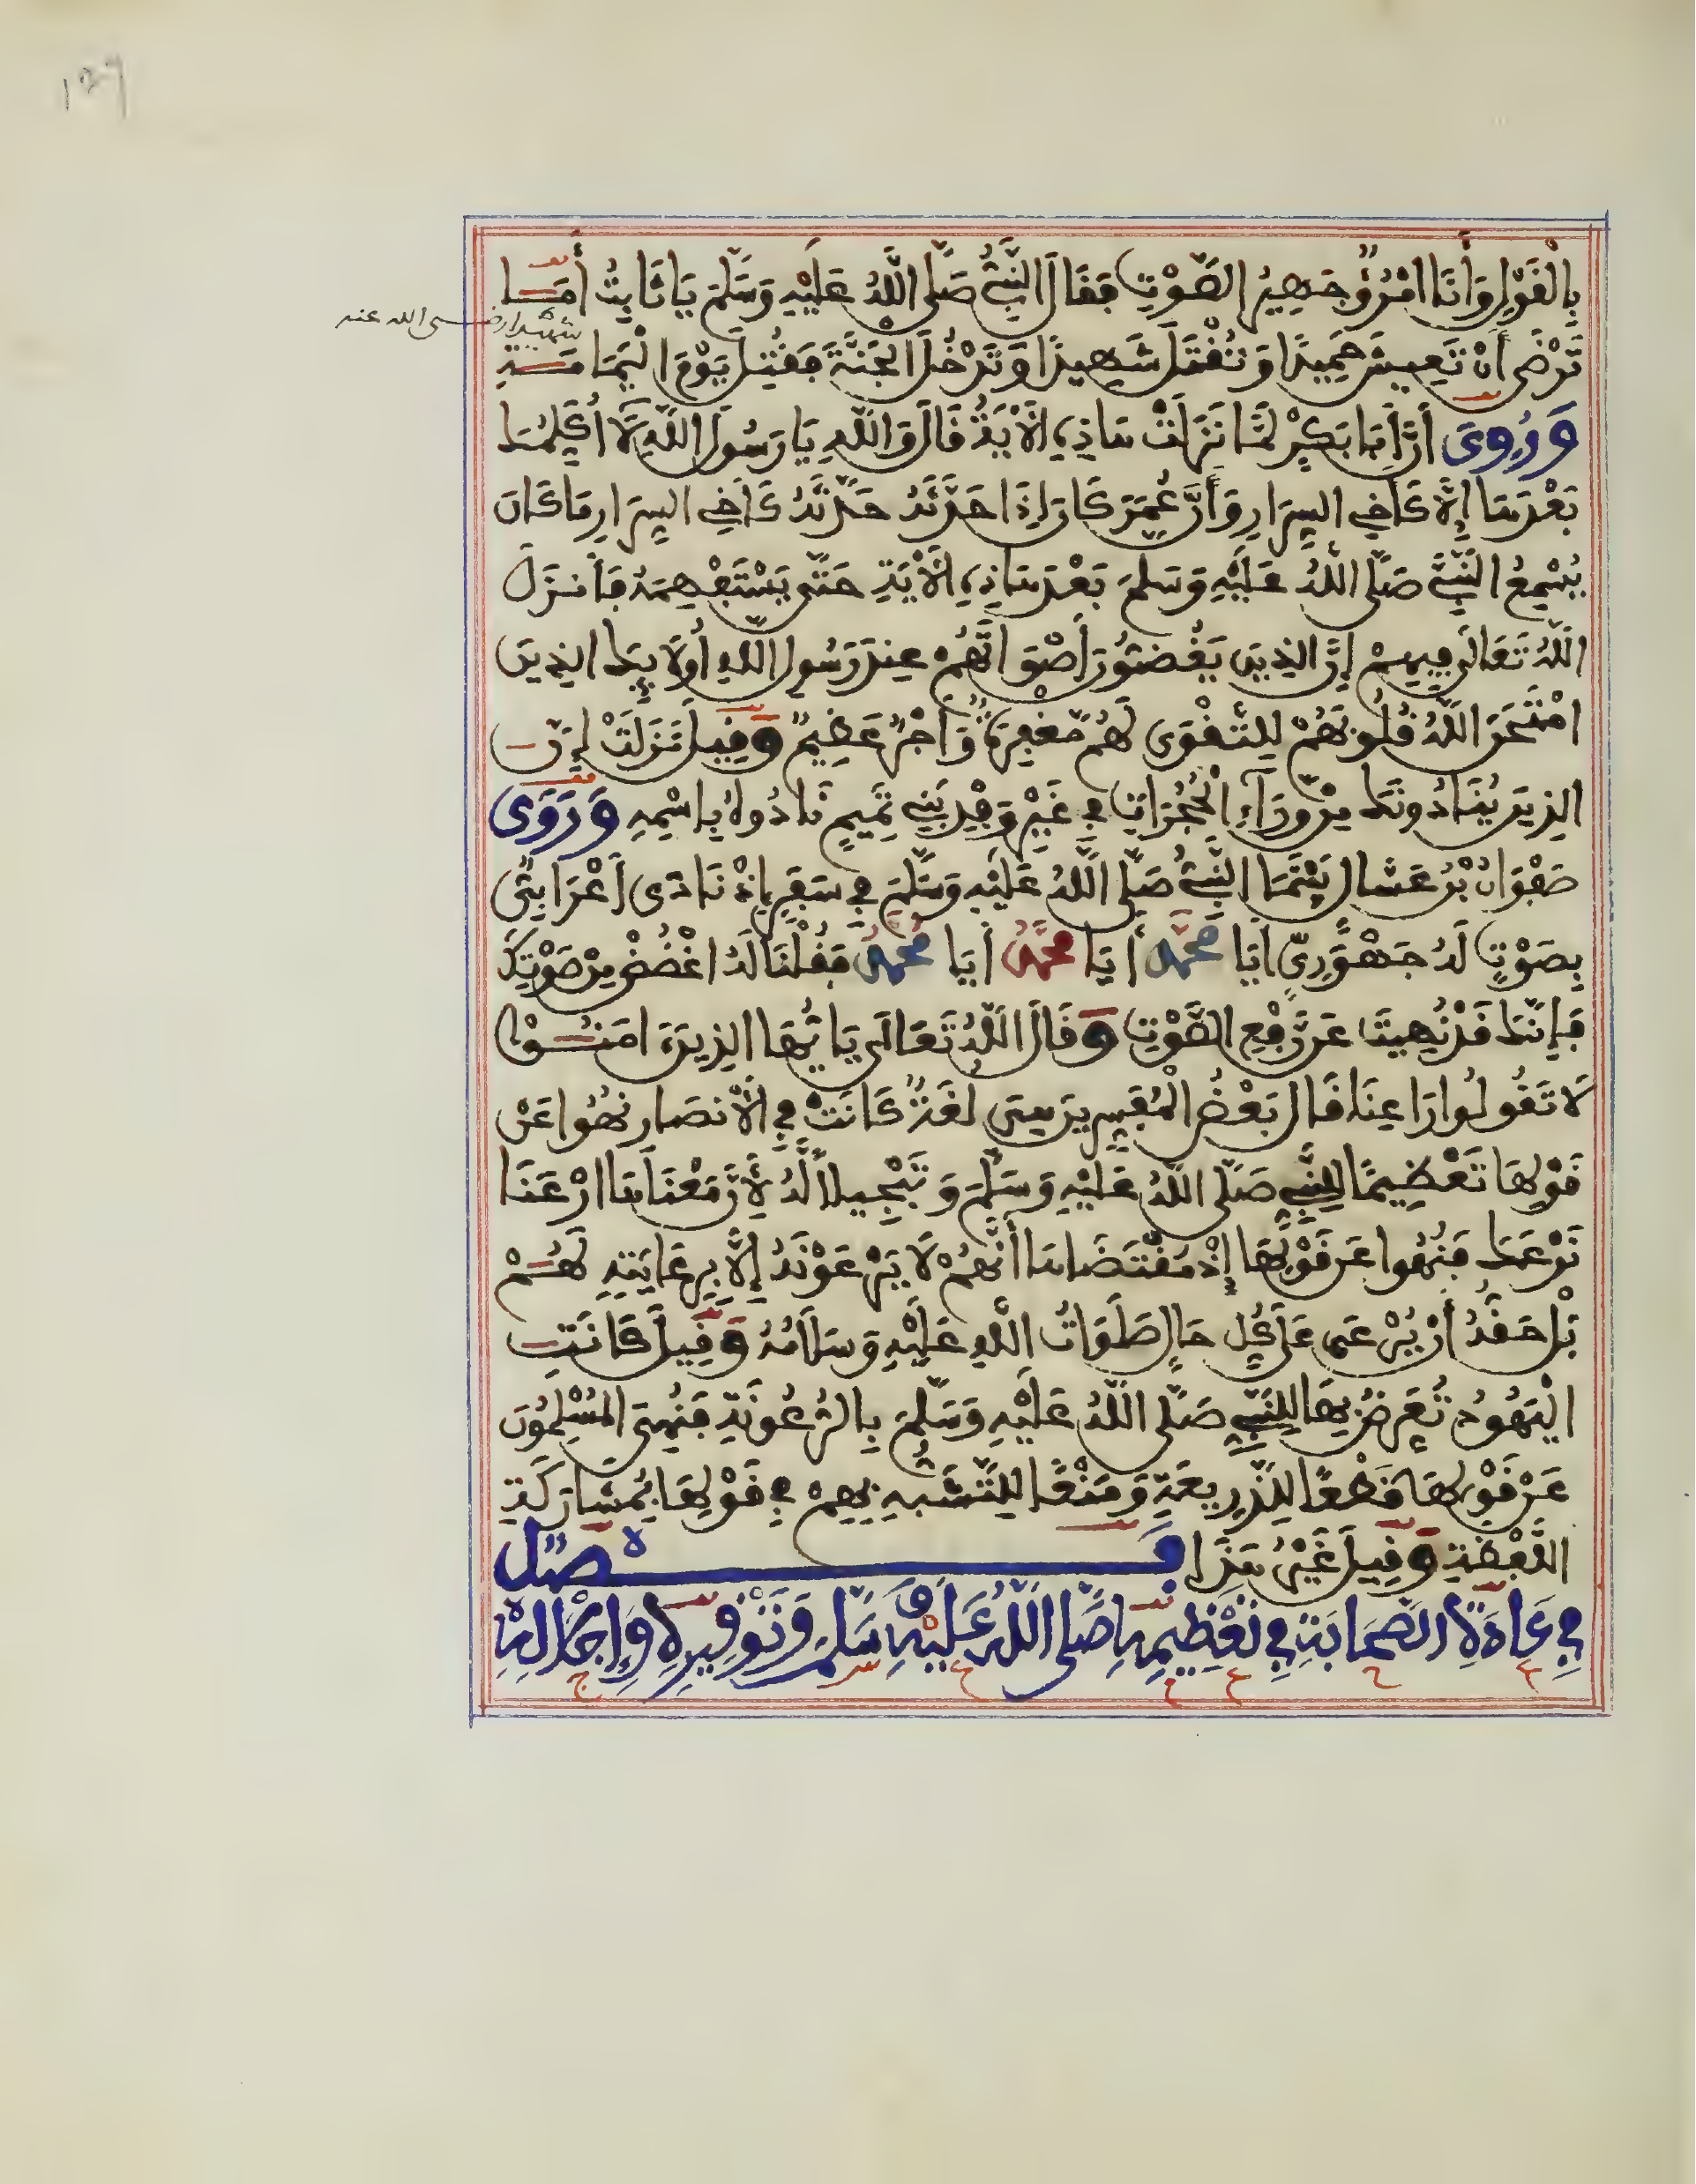 بِالْقَوْلِ وَأَنَا امْرُؤٌ جَهِيرُ الصَّوْتِ فَقَالَ النَّبِيُّ صَلَّى اللَّهُ عَلَيْهِ وَسَلَّمَ يَا ثَابِتُ أَمَا
شهيدا رضي الله عنه
تَرْضَى أَنْ تَعِيشَ حَمِيدًا وَتُقْتَلَ شَهِيدًا وَتَدْخُلَ الْجَنَّةَ فَقُتِلَ يَوْمَ الْيَمَامَةِ
وَرُوِيَ أَنَّ أَبَا بَكْرٍ لَمَّا نَزَلَتْ هَاذِهِ الْآيَةُ قَالَ وَاللَّهِ يَا رَسُولَ اللَّهِ لَا أُكَلِّمُكَ
بَعْدَهَا إِلَّا كَأَخِي السِّرَارِ وَأَنَّ عُمَرَ كَانَ إِذَا حَدَّثَهُ حَدَّثَهُ كَأَخِي السِّرَارِ مَا كَانَ
يُسْمِعُ النَّبِيَّ صَلَّى اللَّهُ عَلَيْهِ وَسَلَّمَ بَعْدَ هَاذِهِ الْآيَةِ حَتَّى يَسْتَفْهِمَهُ فَأَنزَلَ
اللَّهُ تَعَالَى فِيهِمْ إِنَّ الذِينَ يَغُضُّونَ أَصْوَاتَهُمْ عِندَ رَسُولِ اللَّهِ أُولَائِكَ الذِينَ
امْتَحَنَ اللَّهُ قُلُوبَهُمْ لِلتَّقْوَى لَهُم مَّغْفِرَةٌ وَأَجْرٌ عَظِيمٌ وَقِيلَ نَزَلَتْ إِنَّ
الذِينَ يُنَادُونَكَ مِنْ وَرَاءِ الْحُجُرَاتِ فِي غَيْرِ وَفْدِ بَنِي تَمِيمٍ نَادَوْهُ بِاسْمِهِ وَرَوَى
صَفْوَانُ بْنُ عَسَّالٍ بَيْنَمَا النَّبِيُّ صَلَّى اللَّهُ عَلَيْهِ وَسَلَّمَ فِي سَفَرٍ إِذْ نَادَى أَعْرَابِيٌّ
بِصَوْتٍ لَهُ جَهْوَرِيٍّ أَيَا مُحَمَّدُ أَيَا مُحَمَّدُ أَيَا مُحَمَّدُ فَقُلْنَا لَهُ اغْضُضْ مِنْ صَوْتِكَ
فَإِنَّكَ قَدْ نُهِيتَ عَنْ رَفْعِ الصَّوْتِ وَقَالَ اللَّهُ تَعَالَى يَا أَيُّهَا الذِينَ ءَامَنُوا
لَا تَقُولُوا رَاعِنَا قَالَ بَعْضُ الْمُفَسِّرِينَ هِيَ لُغَةٌ كَانَتْ فِي الْأَنصَارِ نُهُوا عَنْ
قَوْلِهَا تَعْظِيمًا لِلنَّبِيِّ صَلَّى اللَّهُ عَلَيْهِ وَسَلَّمَ وَتَبْجِيلًا لَهُ لِأَنَّ مَعْنَاهَا ارْعَنَا
نَرْعَكَ فَنُهُوا عَنْ قَوْلِهَا إِذْ مُقْتَضَاهَا أَنَّهُمْ لَا يَرْعَوْنَهُ إِلَّا بِرِعَايَتِهِ لَهُمْ
بَلْ حَقُّهُ أَنْ يُرْعَى عَلَى كُلِّ حَالٍ صَلَوَاتُ اللَّهِ عَلَيْهِ وَسَلَامُهُ وَقِيلَ كَانَتِ
الْيَهُودُ تُعَرِّضُ بِهَا لِلنَّبِيِّ صَلَّى اللَّهُ عَلَيْهِ وَسَلَّمَ بِالرُّعُونَةِ فَنُهِيَ الْمُسْلِمُونَ
عَنْ قَوْلِهَا قَطْعًا لِلذَّرِيعَةِ وَمَنْعًا لِلتَّشَبُّهِ بِهِمْ فِي قَوْلِهَا لِمُشَارَكَةِ
اللَّفْظَةِ وَقِيلَ غَيْرُ هَذَا فَصْلٌ
فِي عَادَةِ الصَّحَابَةِ فِي تَعْظِيمِهِ صَلَّى اللَّهُ عَلَيْهِ وَسَلَّمَ وَتَوْقِيرِهِ وَإِجْلَالِهِ